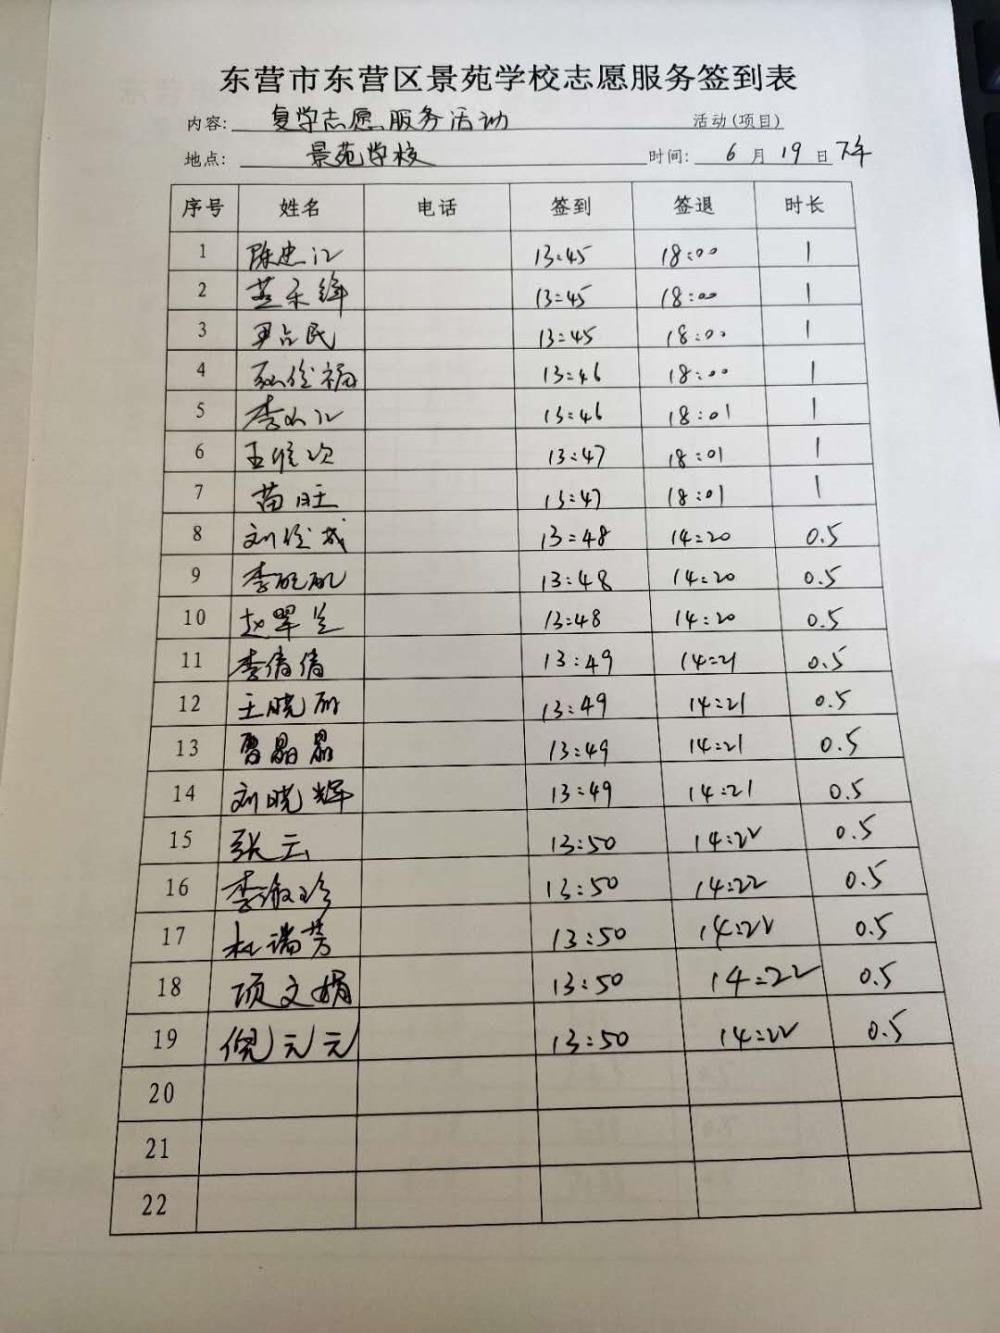 东营市东营区景苑学校志愿服务签到表
内容: 复学志愿服务活动 活动(项目)
地点: 景苑学校 时间: 6 月 19 日 下午
序号 姓名 电话 签到 签退 时长
1 陈忠江 13:45 18:00 1
2 13:45 18:00 1
3 民 13:45 18:00 1
4 福 13:46 18:00 1
5 李 13:46 18:01 1
6 王 13:47 18:01 1
7 苗旺 13:47 18:01 1
8 刘俊成 13:48 14:20 0.5
9 李 13:48 14:20 0.5
10 赵翠兰 13:48 14:20 0.5
11 李倩倩 13:49 14:21 0.5
12 王晓丽 13:49 14:21 0.5
13 曹晶晶 13:49 14:21 0.5
14 刘晓辉 13:49 14:21 0.5
15 张云 13:50 14:22 0.5
16 李淑珍 13:50 14:22 0.5
17 杜瑞芳 13:50 14:22 0.5
18 项文娟 13:50 14:22 0.5
19 倪元元 13:50 14:22 0.5
20
21
22